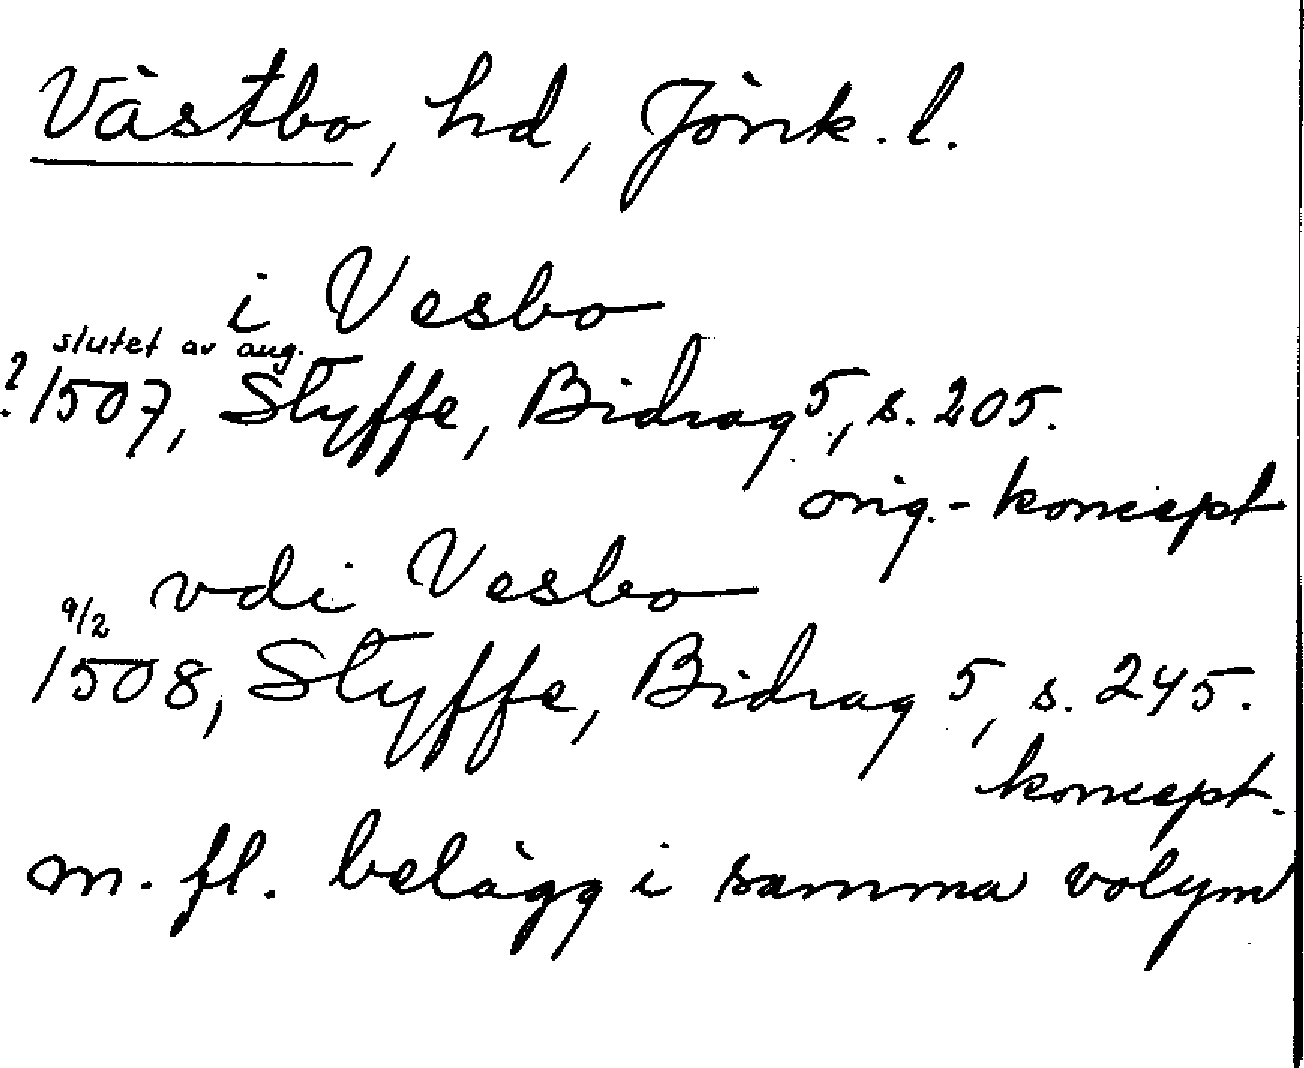 Västbo, hd, Jönk. l.
i Vesbo
slutet av aug.
? 1507, Styffe, Bidrag 5, s. 205.
orig.- koncept
vdi Vesbo
9/2
1508, Styffe, Bidrag 5, s. 245.
koncept.
m. fl. belägg i samma volym